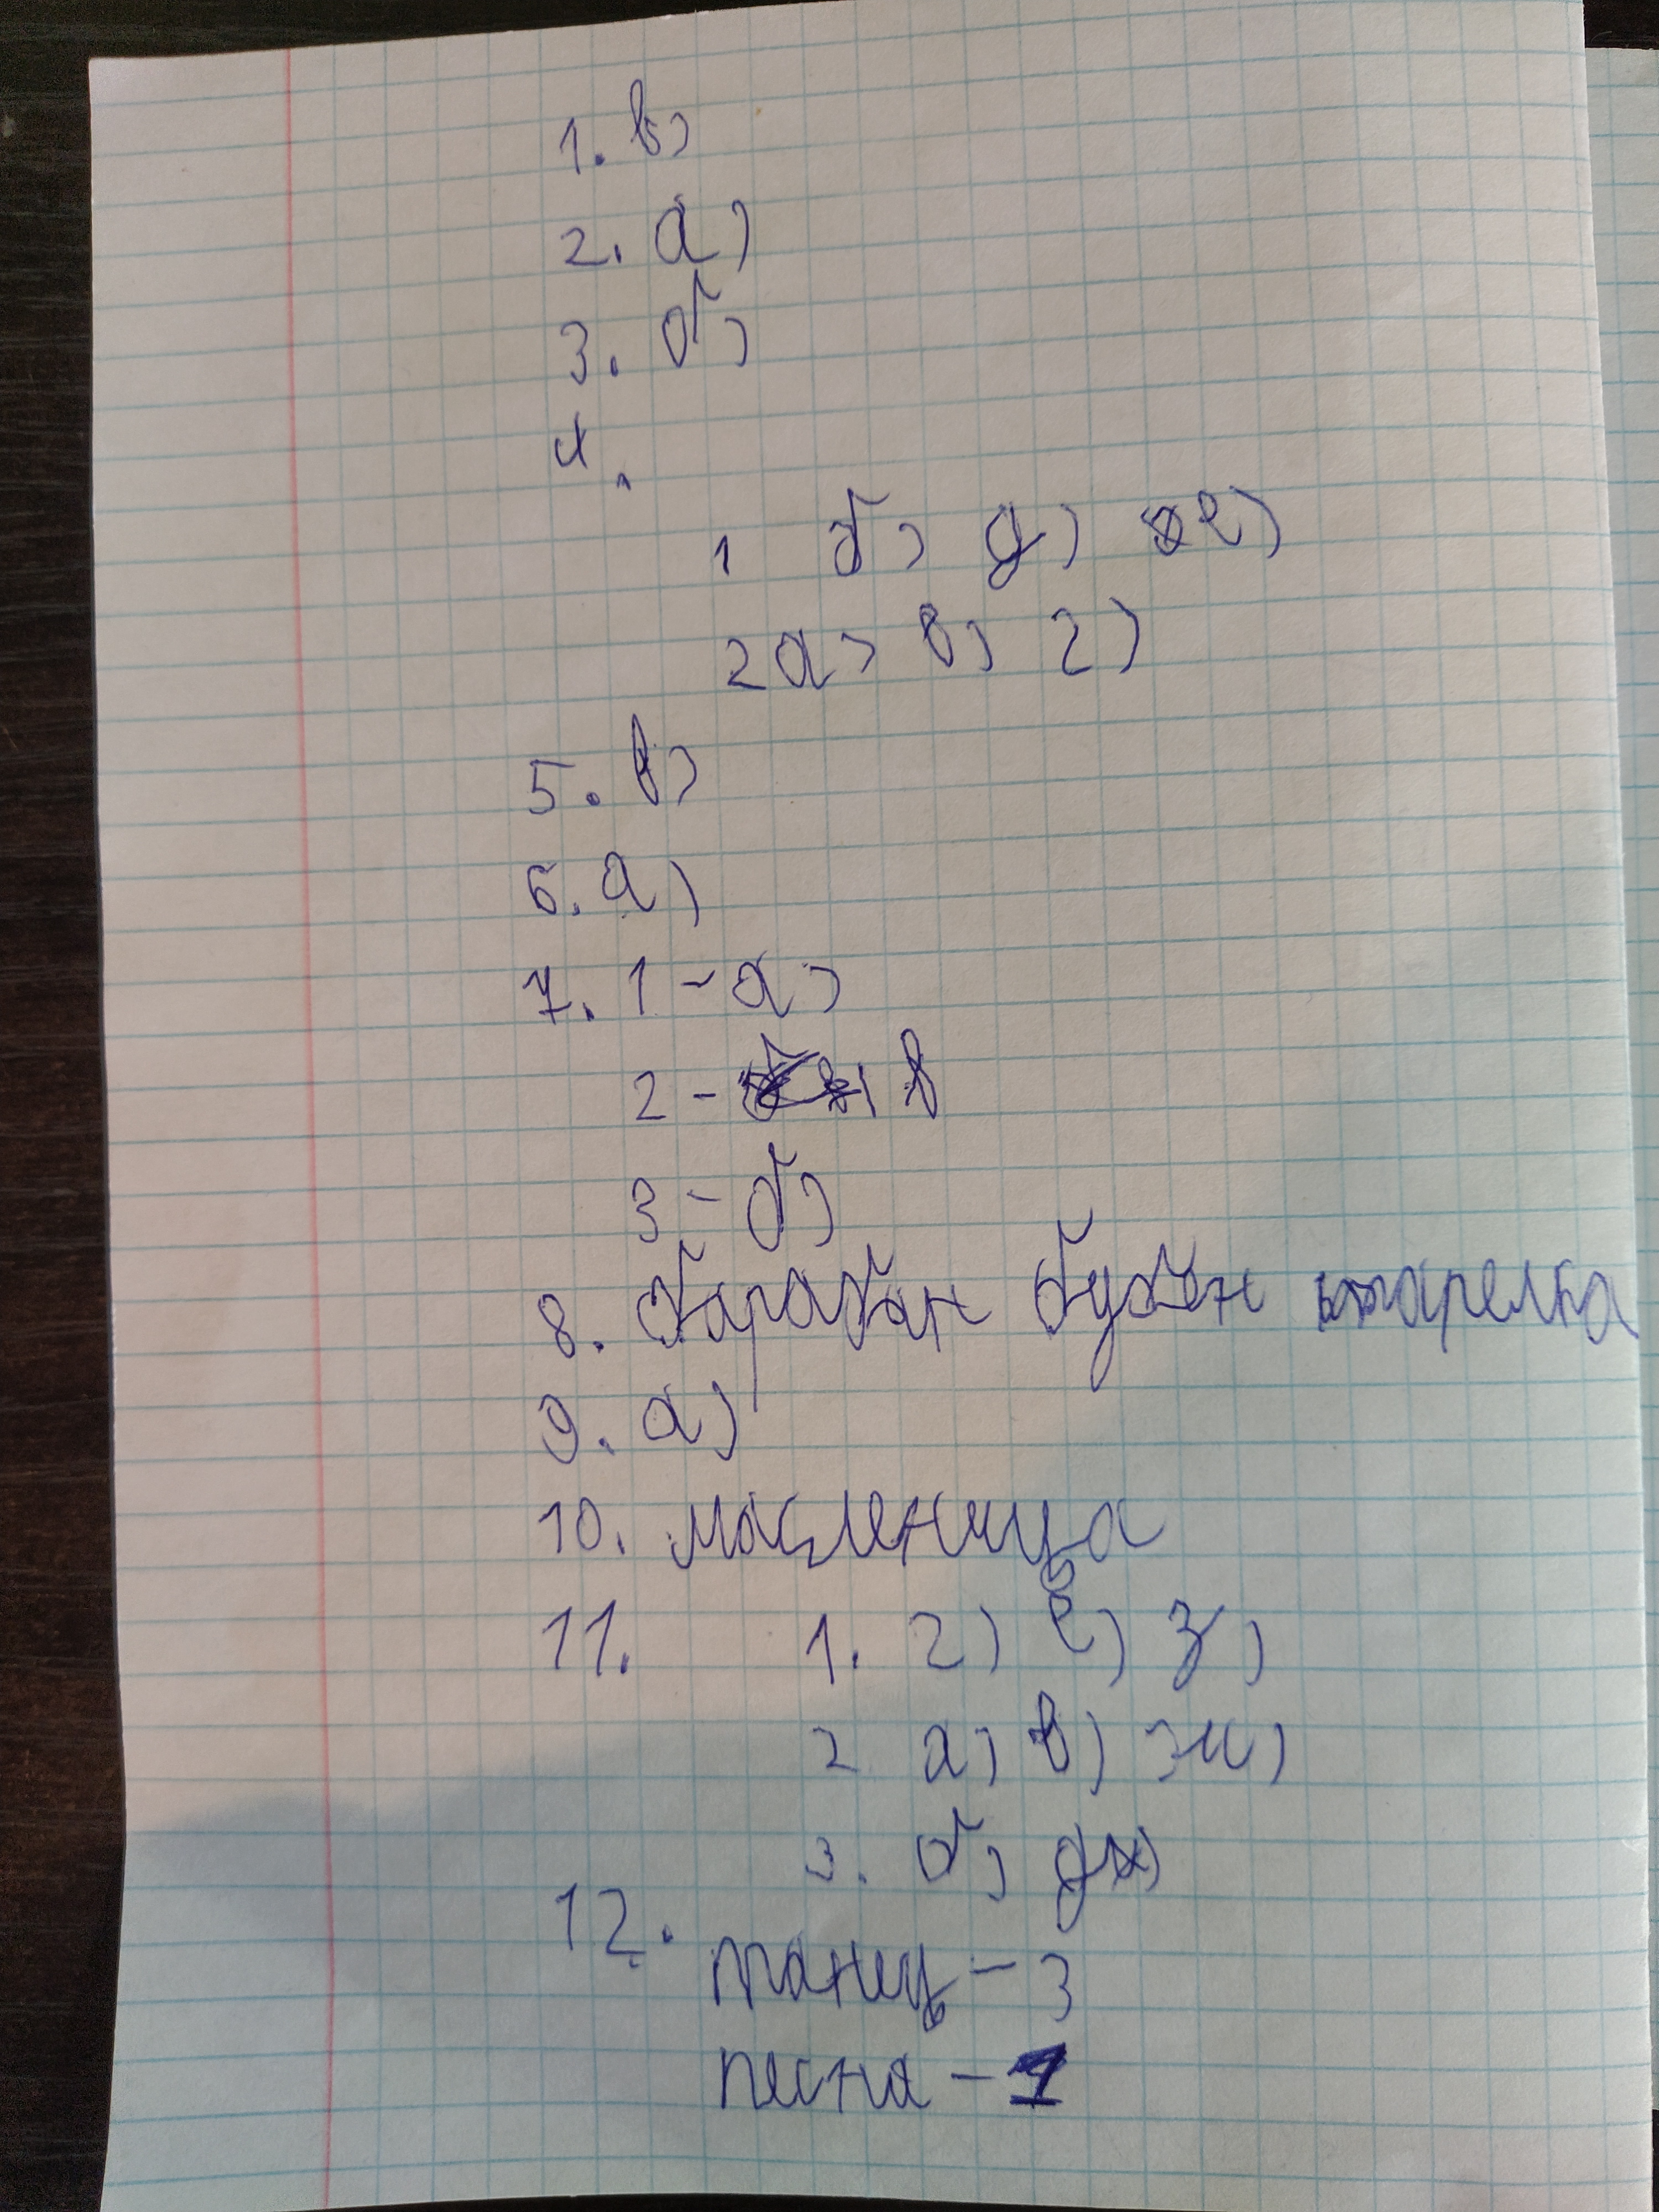 1. в)
2. а)
3. б)
4.
1 б) д) е)
2 а) в) г)
5. в)
6. а)
7. 1 - а)
2 - в
3 - б)
8. барабан бубен тарелка
9. а)
10. масленица
11. 1. г) е) з)
2 а) в) ж)
3. б) д)
12.
танец - 3
песня - 1